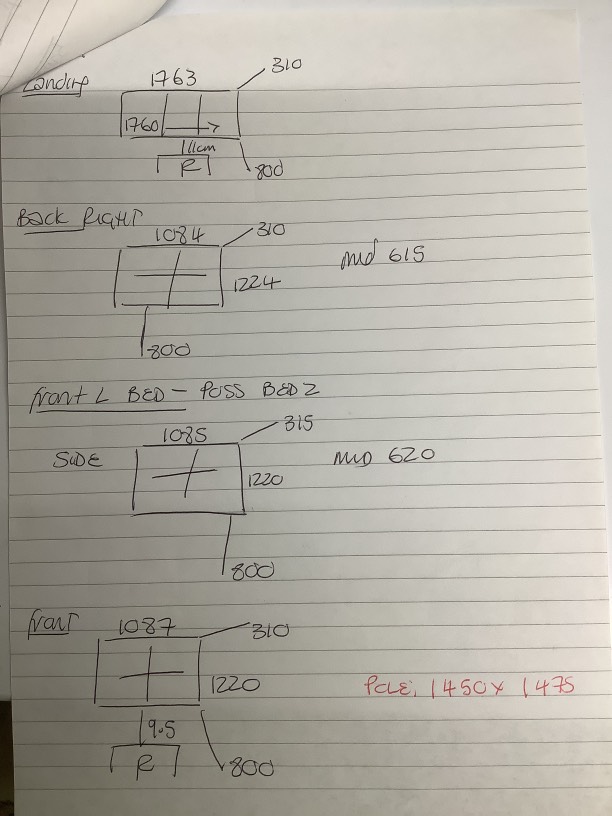 Landing
1763
310
1760
11cm
R
800
Back Right
1084
310
1224
mid 615
800
front L BED - POSS BED 2
1085
315
SIDE
1220
MID 620
800
front
1087
310
1220
POLE. 1450 x 1475
9.5
R
800